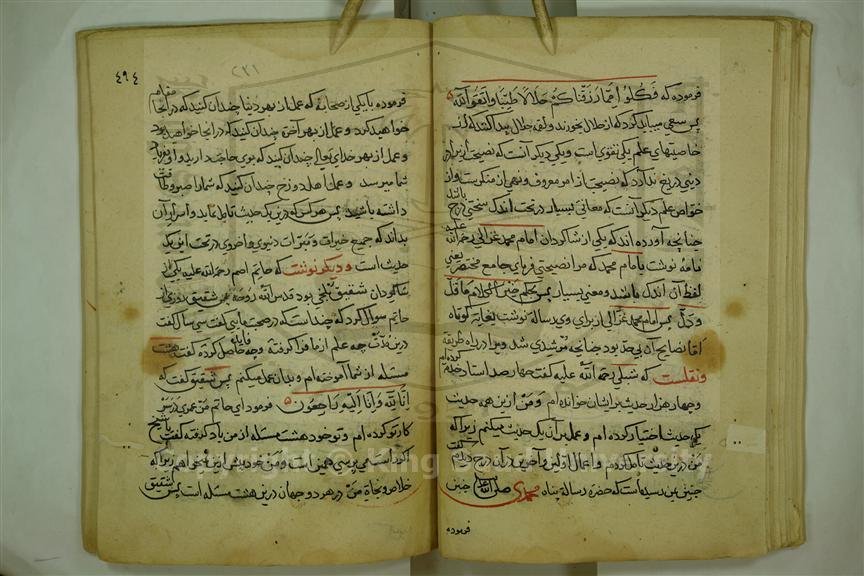 فرموده که فَكُلُوا مِمَّا رَزَقْنَاكُمْ حَلَالًا طَيِّبًا وَاتَّقُوا اللّٰهَ
پس سعی میباید کرد که از حلال بخورند و لقمه حلال پیدا کنند که از
خاصیتهای علم یکی تقوی است و یکی دیگر آنست که نصیحت از برادر
دینی دریغ ندارد که نصیحت از امر معروف و نهی از منکرست و از
خواص علم دیگر آنست که معانی بسیار در تحت اندک سخنی درج باشد
چنانچه آورده اند که یکی از شاکردان امام محمد غزالی رحمه الله علیه
نامه نوشت بامام محمد که مرا نصیحتی فرمای جامع مختصر یعنی
لفظ آن اندک باشد و معنی بسیار پس بحکم خیر الکلام ما قلّ
و دلّ پس امام محمد غزالی از برای وی رساله نوشت بغایه کوتاه
اما نصایح آن بی حد بود چنانچه مرشدی شد ویرا در راه طریقه
و نقلست که شبلی رحمة اللّٰه علیه گفت چهار صد استاد خدمة کرده ام
و چهار هزار حدیث بر ایشان خوانده ام و من از این همه حدیث
یک حدیث اختیار کرده ام و عمل بر آن یک حدیث میکنم زیرا که
من درین حدیث تامل کردم و اعمال اولین و آخرین در آن درج دیدم گفت
چنین بمن رسیده است که حضرة رسالة پناه محمدی صلی الله چنین
فرموده
٤٩٤
٢٣١
فرموده با یکی از صحابه که عمل از بهر دنیا چندان کنید که در آنجا مقام
خواهید کرد و عمل از بهر آخرة چندان کنید که در آنجا خواهید بود
و عمل از بهر خدای تعالی چندان کنید که بوی حاجت دارید و از وی
شما میرسد و عمل اهل دوزخ چندان کنید که شما را صبر و طاقت
داشته باشید پس هر کس که درین یک حدیث تامل نماید و اسرار آن
بداند که جمیع خیرات و مبرّات دنیوی و اخروی در تحت این یک
حدیث است و دیگر نوشت که حاتم اصم رحمه الله علیه یکی از
شاکردان شقیق بلخی بود قدس اللّٰه روحه پس شقیق روزی از
حاتم سوال کرد که چند است که در صحبت مایی گفت سی سال گفت
درین مدّت چه علم از ما فرا گرفتهٔ و چه فایده حاصل کردهٔ گفت هشت
مسئله از شما آموخته ام و بدان عمل میکنم پس شقیق گفت که
اِنَّا لِلّٰهِ وَاِنَّا اِلَيْهِ رَاجِعُونَ فرمود ای حاتم من عمری در سر
کار تو کرده ام و تو خود هشت مسئله از من یاد گرفتهٔ گفت یا شیخ
اگر راست می پرسی همین است و من خود بیش ازین نخواهم زیرا که
خلاص و نجاة من در هر دو جهان درین هشت مسئله است پس شقیق